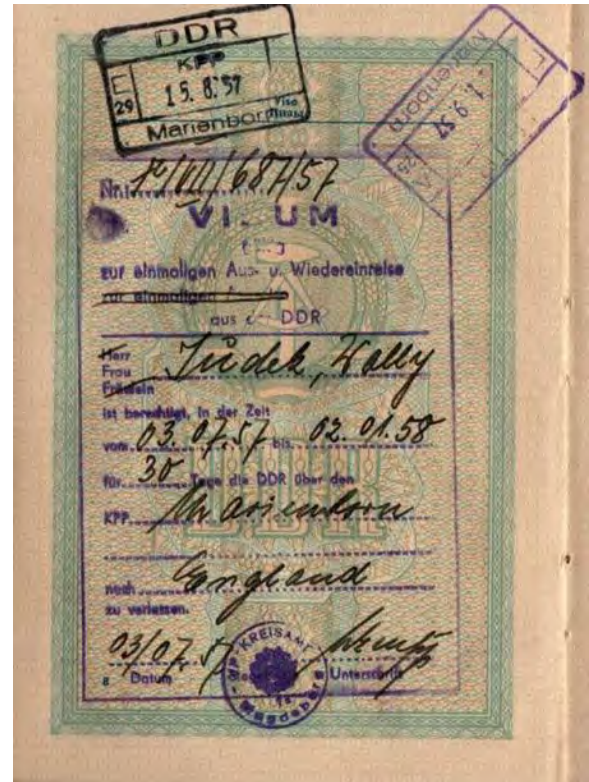 DDR
KPP
E
29
15. 8. 57
Marienborn
Marienborn
1. 9. 57
Nr. /VII/687/57
VISUM
zur einmaligen Aus- u. Wiedereinreise
zur einmaligen
aus der DDR
Herr
Frau Judek, Wally
Fräulein
ist berechtigt, in der Zeit
vom 03. 07. 57 bis 02. 01. 58
für 30 Tage die DDR über den
KPP Marienborn
nach England
zu verlassen.
03/07. 57
Datum
Unterschrift
VP-KREISAMT
Magdeburg
DDR